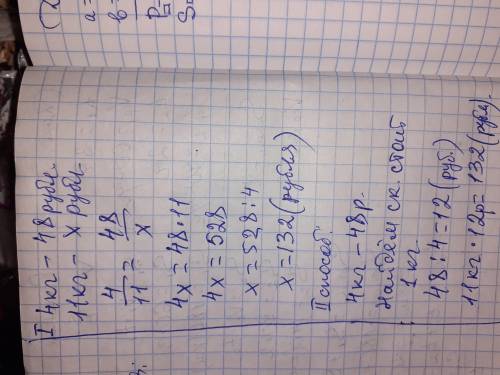 (2
a=
b=
P=
S=
I 4кг – 48 рубл.
11кг – x рубл.
4/11 = 48/x
4x = 48·11
4x = 528
x = 528:4
x = 132 (рубля)
II способ:
4кг – 48р.
Найдём ск. стоит
1 кг.
48:4=12 (руб.)
11кг·12р= 132 (рубл).